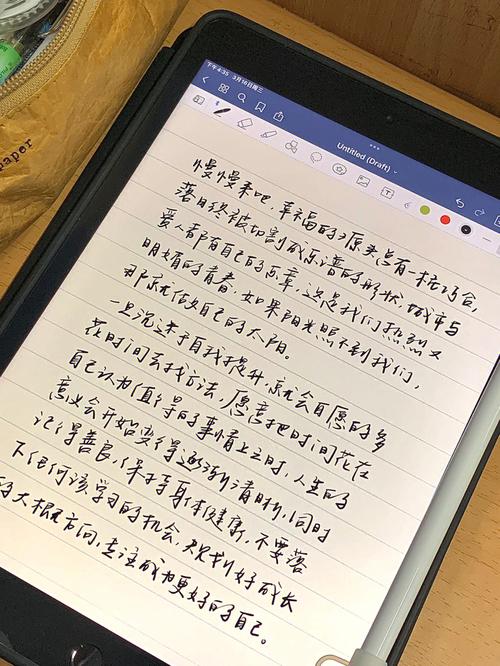 paper
下午4:35 3月16日周三
Untitled (Draft)
慢慢来吧,幸福的源头总有一桩巧合,
落日终被切割成乐谱的形状,城市与
爱人都有自己的乐章,这是我们热烈又
明媚的青春。如果阳光照不到我们,
那就做自己的太阳。
一旦沉迷于自我提升,就会自愿的多
花时间去找方法,愿意把时间花在
自己认为值得的事情上之时,人生的
意义会开始变得逐渐清晰,同时
记得善良,保持身体健康,不要落
下任何该学习的机会,规划好成长
的大概方向,专注成为更好的自己。